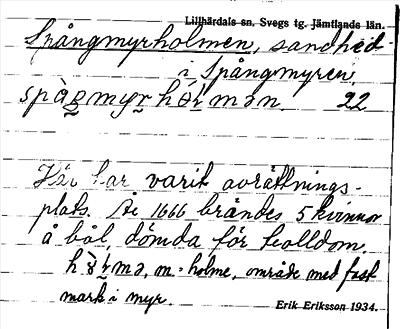 Lillhärdals sn. Svegs tg. Jämtlands län.
Spångmyrholmen, sandhed
i Spångmyren.
22
Här har varit avrättnings-
plats. År 1666 brändes 5 kvinnor
å bål, dömda för trolldom.
m. = holme, område med fast
mark i myr.
Erik Eriksson 1934.